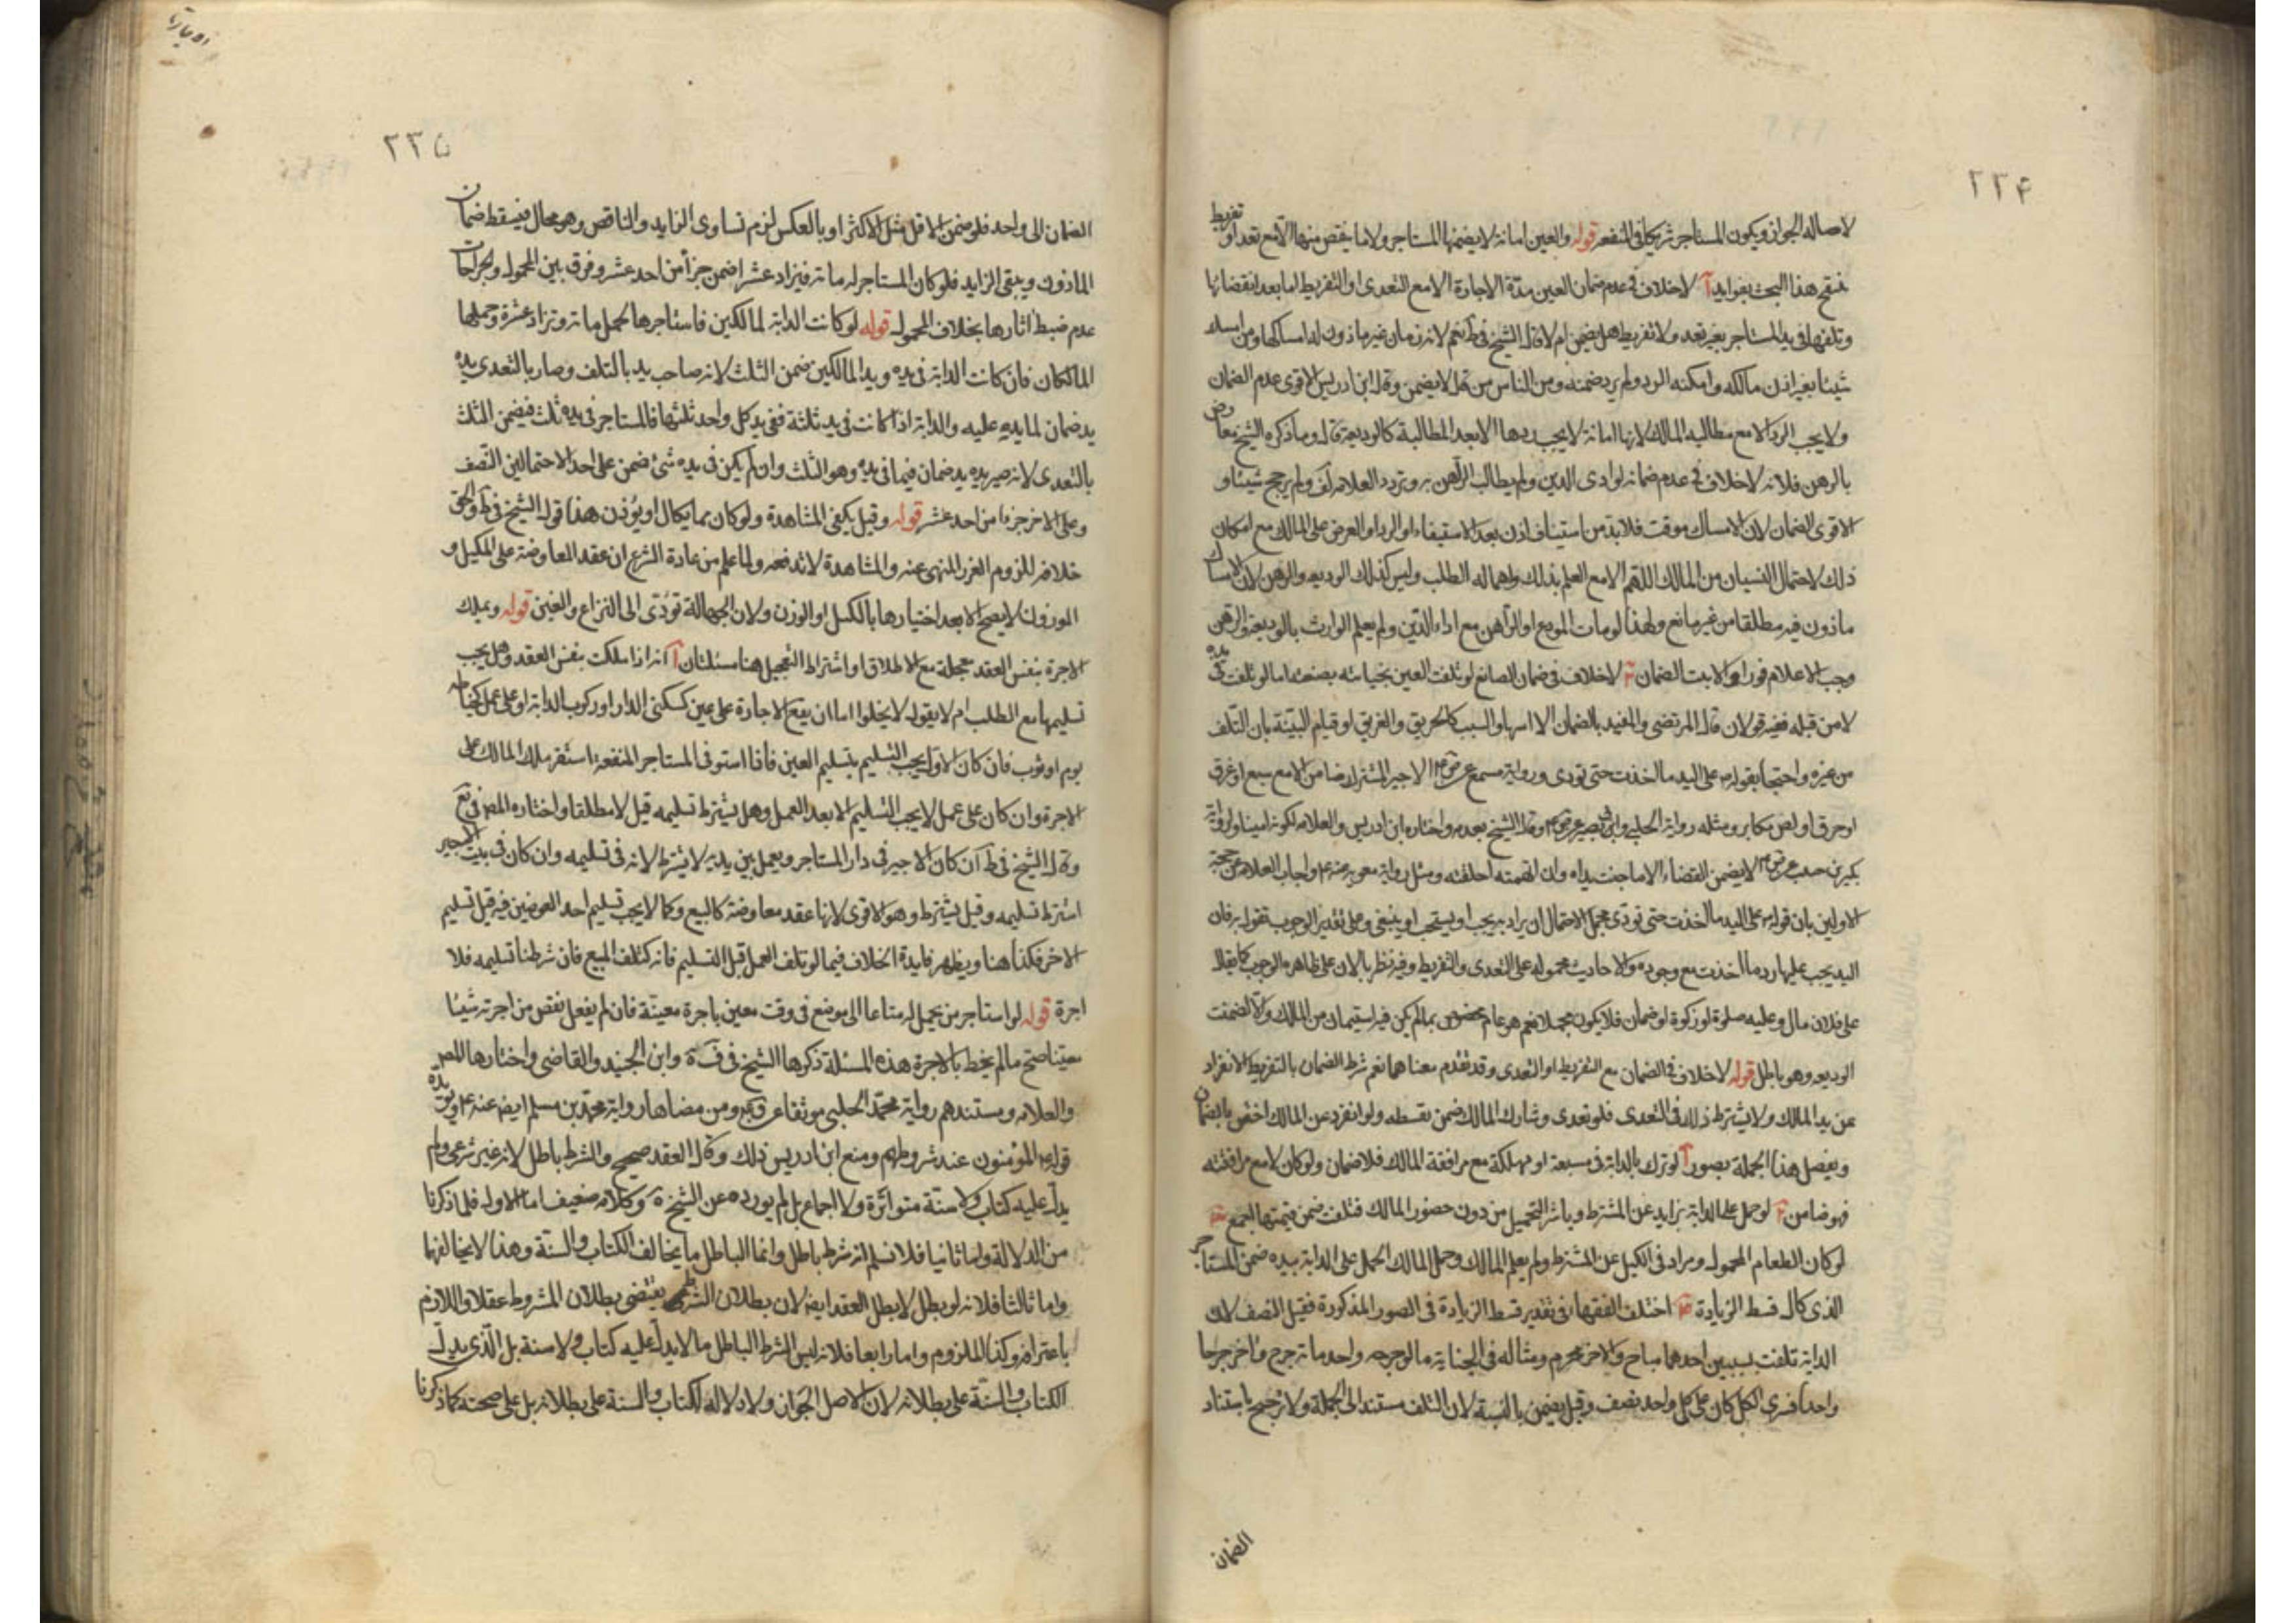 ٢٣۴
لاصالة الجواز ويكون المستاجر شريكا في المنفعه قوله والعين امانة لا يضمنها المستاجر ولا ما ينقص منها الا مع تعد او تفريط
هذا البحث بفوايد آ لاخلاف في عدم ضمان العين مدة الاجارة الا مع التعدى او التفريط اما بعد انقضائها
وتلفها في يد المستاجر بغير تعد ولا تفريط هل يضمن ام لا قال الشيخ في ط نعم لانه زمان غير ماذون له امساكها ومن امسك
شيئا بغير اذن مالكه وامكنه الرد ولم يرد ضمنه ومن الناس من قال لا يضمن وقال ابن ادريس الاقوى عدم الضمان
ولا يجب الرد الا مع مطالبة المالك لانها امانة لا يجب ردها الا بعد المطالبة كالوديعة قال وما ذكره الشيخ معارض
بالرهن فلانه لاخلاف في عدم ضمانه لو ادى الدين ولم يطالب الراهن به وتردد العلامه في لف ولم يرجح شيئا و
الاقوى الضمان لان الامساك موقت فلا بد من استيناف اذن بعد الاستيفاء او الرد او العرض على المالك مع امكان
ذلك لاحتمال النسيان من المالك اللهم الا مع العلم بذلك واهماله الطلب وليس كذلك الوديعه والرهن لان الامساك
ماذون فيه مطلقا من غير مانع ولهذا لو مات المودع او الراهن مع اداء الدين ولم يعلم الوارث بالوديعة والرهن
وجب الاعلام فورا والا ثبت الضمان لاخلاف في ضمان الصانع لو تلفت العين بجنايته بصنعته اما لو تلفت في يده
لا من قبله ففيه قولان قال المرتضى والمفيد بالضمان الا السبب كالحريق والغريق او قيام البينة بان التلف
من غيره واحتجا بقوله على اليد ما اخذت حتى تودى ورواية مسمع عن الاجير المشترك ضامن الا مع سبع او غرق
او حرق او لص مكابر ومثله رواية الحلبي وابي بصير وقال الشيخ بعدمه واختاره ابن ادريس والعلامه لكونه امينا ولرواية
بكير بن حبيب لا يضمن القصار الا ما جنت يداه وان اتهمته احلفته ومثل رواية معويه عنه واجاب العلامه عن حجة
الاولين بان قوله على اليد ما اخذت حتى تودى مجمل لاحتمال ان يراد به يجب او يستحب او ينبغى وعلى تقدير الوجوب نقول به فان
اليد يجب عليها رد ما اخذت مع وجوده والاحاديث محمولة على التعدى والتفريط وفيه نظر بالان على ظاهره الوجوب كما يقال
على فلان مال وعليه صلوة او زكوة او ضمان فلا يكون مجملا نعم هو عام مخصوص بما لم يكن فيه استيمان من المالك والا لضمنت
الوديعه وهو باطل قوله لاخلاف في الضمان مع التفريط او التعدى وقد تقدم معناهما نعم شرط الضمان بالتفريط الانفراد
عن يد المالك ولا يشترط ذلك في التعدى فلو تعدى وشارك المالك ضمن بقسطه ولو انفرد عن المالك اختص بالضمان
ويفصل هذا الجملة بصور آ لو ترك بالدابة في مسبعة او مهلكة مع مرافقة المالك فلا ضمان ولو كان لا مع مرافقته
فهو ضامن لو حمل على الدابة بزايد عن المشترط وباشر التحميل من دون حضور المالك فتلفت ضمن قيمتها اجمع
لو كان الطعام المحمول وزاد في الكيل عن المشترط ولم يعلم المالك وحمل المالك الحمل على الدابة بيده ضمن المستاجر
الذى كال قسط الزيادة اختلف الفقهاء في تقدير قسط الزيادة في الصور المذكورة فقيل النصف لان
الدابة تلفت بسببين احدهما مباح والاخر محرم ومثاله في الجناية ما لو جرحه واحد مائة جرح واخر جرحا
واحدا فسرى الكل كان على كل واحد نصف وقيل يضمن بالنسبة لان التلف مستند الى الجملة ولا ترجيح باستناد
الضمان
٢٣٥
الضمان الى واحد فلو ضمن الاقل مثل الاكثر او بالعكس لزم تساوى الزايد والناقص وهو محال فيسقط ضمان
الماذون ويبقى الزايد فلو كان المستاجر له مائة فيزاد عشرا ضمن جزأ من احد عشر وفرق بين المحمول والجراحات
عدم ضبط اثارها بخلاف المحمول قوله لو كانت الدابة لمالكين فاستاجرها لحمل مائة وتزاد عشرة وحملها
المالكان فان كانت الدابة في يده ويد المالكين ضمن الثلث لانه صاحب يد بالتلف وصار بالتعدى يده
يد ضمان لما يده عليه والدابة اذا كانت في يد ثلثة ففي يد كل واحد ثلثها فالمستاجر في يده ثلث فيضمن الثلث
بالتعدى لانه صير يده يد ضمان فيما في يده وهو الثلث وان لم يكن في يده شئ ضمن على احد الاحتمالين النصف
وعلى الاخر جزءا من احد عشر قوله وقيل يكفى المشاهدة ولو كان مما يكال او يوزن هذا قول الشيخ في ط والحق
خلافه للزوم الغرر المنهى عنه والمشاهدة لا تدفعه ولما علم من عادة الشرع ان عقد المعاوضة على المكيل و
الموزون لا يصح الا بعد اختيارها بالكيل او الوزن ولان الجهالة تؤدى الى النزاع والغبن قوله ويملك
الاجرة بنفس العقد معجلة مع الاطلاق او اشتراط التعجيل هنا مسئلتان آ انه اذا ملكت بنفس العقد وهل يجب
تسليمها مع الطلب ام لا يقول لا يخلوا اما ان يقع الاجارة على عين كسكنى الدار او ركوب الدابة او على عمل كخياطه
يوم او ثوب فان كان الاول يجب التسليم بتسليم العين فاذا استوفى المستاجر المنفعة استقر ملك المالك على
الاجرة وان كان على عمل لا يجب التسليم الا بعد العمل وهل يشترط تسليمه قيل لا مطلقا واختاره المص في يع
وقال الشيخ في ط ان كان الاجير في دار المستاجر ويعمل بين يديه لا يشترط لانه في تسليمه وان كان في بيت الاجير
اشترط تسليمه وقيل يشترط وهو الاقوى لانها عقد معاوضة كالبيع وكما لا يجب تسليم احد العوضين فيه قبل تسليم
الاخر فكذا هنا ويظهر فايدة الخلاف فيما لو تلف العمل قبل التسليم فانه كتلف المبيع فان شرطنا تسليمه فلا
اجرة قوله لو استاجر من يحمل له متاعا الى موضع في وقت معين باجرة معينة فان لم يفعل نقص من اجرته شيئا
معينا صح ما لم يحط بالاجرة هذه المسئلة ذكرها الشيخ في ف ية وابن الجنيد والقاضى واختارها المص
والعلامه ومستندهم رواية محمد الحلبي موثقا عن ومن مضاها رواية محمد بن مسلم ايض عنه ويؤيده
قوله المؤمنون عند شروطهم ومنع ابن ادريس ذلك وقال العقد صحيح والشرط باطل لانه غير شرعى ولم
يدل عليه كتاب ولا سنة متواترة ولا اجماع بل لم يورده عن الشيخ وكلامه ضعيف اما الاول فلما ذكرنا
من الدلالة واما ثانيا فلا نسلم انه شرط باطل وانما الباطل ما يخالف الكتاب والسنة وهذا لا يخالفهما
واما ثالثا فلانه لو بطل لابطل العقد ايض لان بطلان الشرط يقتضى بطلان المشروط عقلا واللازم
باعترافه وكذا الملزوم واما رابعا فلانه ليس الشرط الباطل ما لا يدل عليه كتاب ولا سنة بل الذى يدل
الكتاب والسنة على بطلانه لان الاصل الجواز ولا دلالة لكتاب والسنة على بطلانه بل على صحته كما ذكرنا